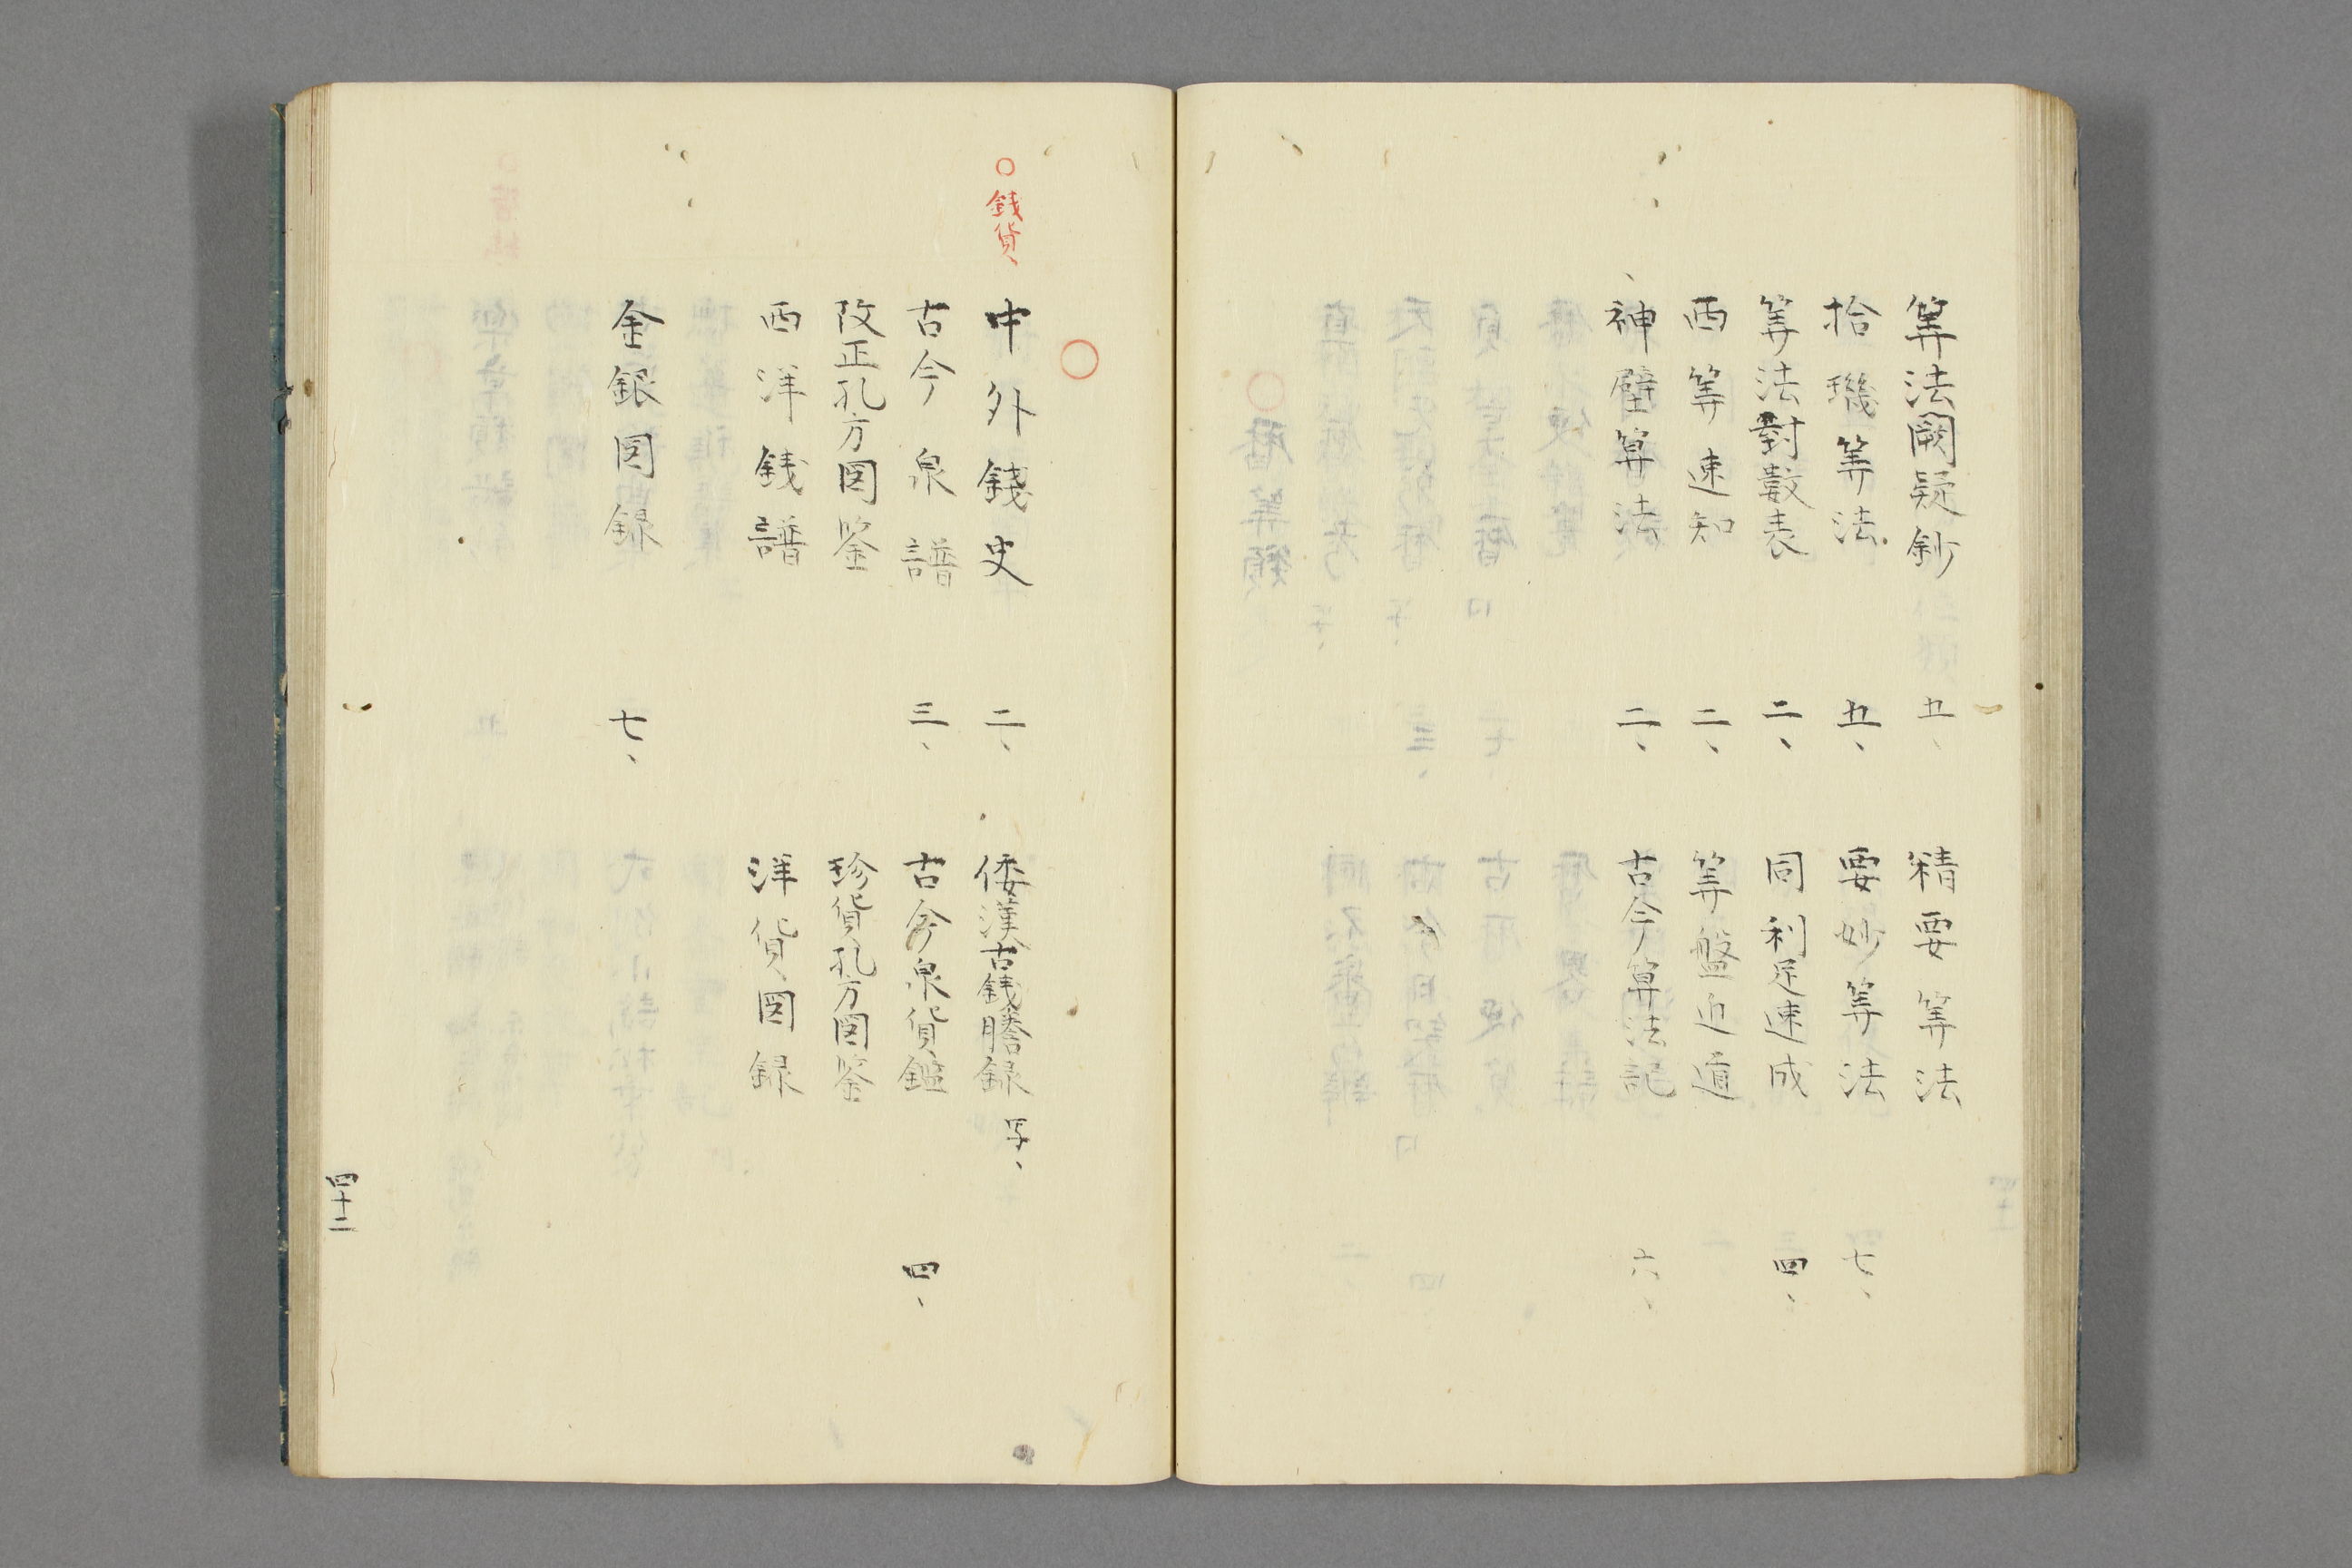 筭法闕疑鈔 五、
精要筭法
拾璣筭法 五、
要妙筭法 七、
筭法對數表 二、
同利足速成 四、
西筭速知 二、
筭盤近道
神壁算法 二、
古今算法記 六、
○
○銭貨、
中外錢史 二、
倭漢古銭謄録 写、
古今泉譜 三、
古今泉貨鑑 四、
改正孔方図鉴
珍貨孔方図鉴
西洋銭譜
洋貨図録
金銀図録 七、
四十二